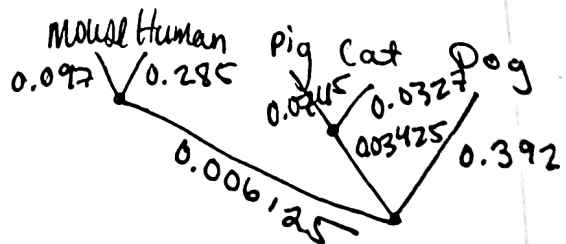 Mouse Human Pig Cat Dog
0.097 0.285 0.0327
0.03425 0.392
0.006125